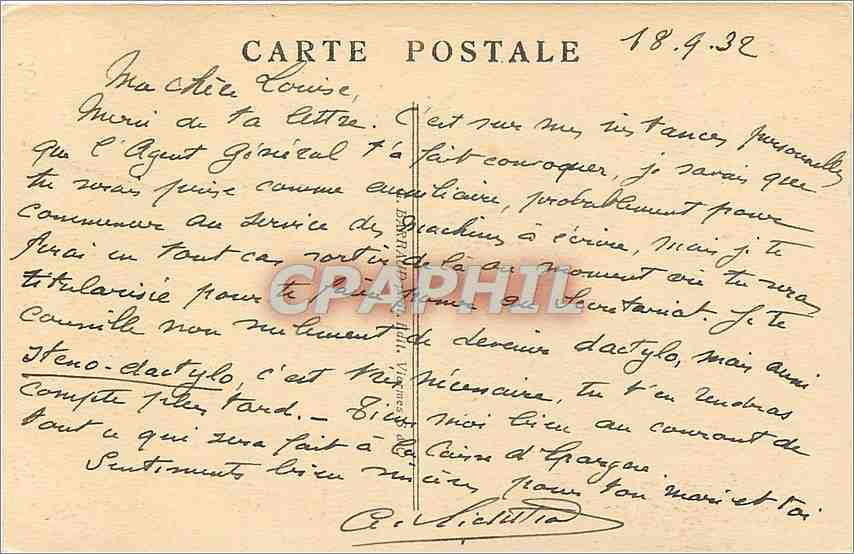 CARTE POSTALE
18.9.32
Ma chère Louise,
Merci de ta lettre. C'est sur mes instances personnelles
que l'Agent Général t'a fait convoquer, je savais que
tu serais prise comme auxiliaire, probablement pour
commencer au service des machines à écrire, mais je te
ferai en tout cas sortir de là au moment où tu seras
titularisée pour te faire passer au Secrétariat. Je te
conseille non seulement de devenir dactylo, mais aussi
sténo-dactylo, c'est très nécessaire, tu t'en rendras
compte plus tard. — Tiens moi bien au courant de
tout ce qui sera fait à la Caisse d'Epargne.
Sentiments bien sincères pour ton mari et toi
BARRAUD
Edit.
CPAPHIL